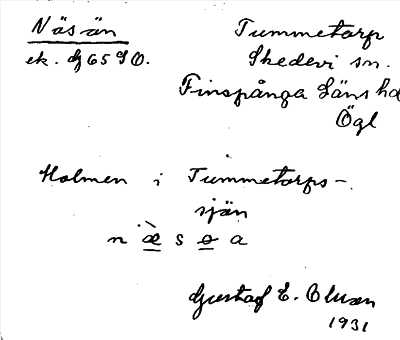 Näsön
ek. dj 65 SO.
Tummetorp
Skedevi sn.
Finspånga Läns hd
Ögl
Holmen i Tummetorps-
sjön
n æ̀ s ɵ a
Gustaf E. Olsson
1931